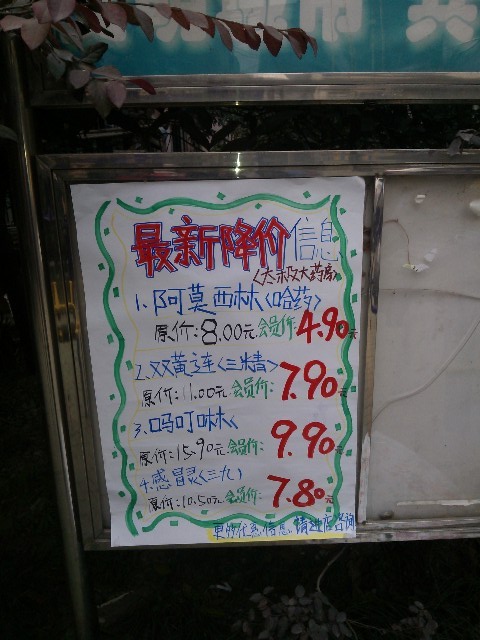 最新降价信息
<太极大药房>
1.阿莫西林<哈药>
原价:8.00元 会员价:4.90元
2.双黄连<三精>
原价:11.00元 会员价:7.90元
3.吗叮啉<
原价:15.90元 会员价:9.90元
4.感冒灵<三九>
原价:10.50元 会员价:7.80元
更多优惠信息 请进店咨询